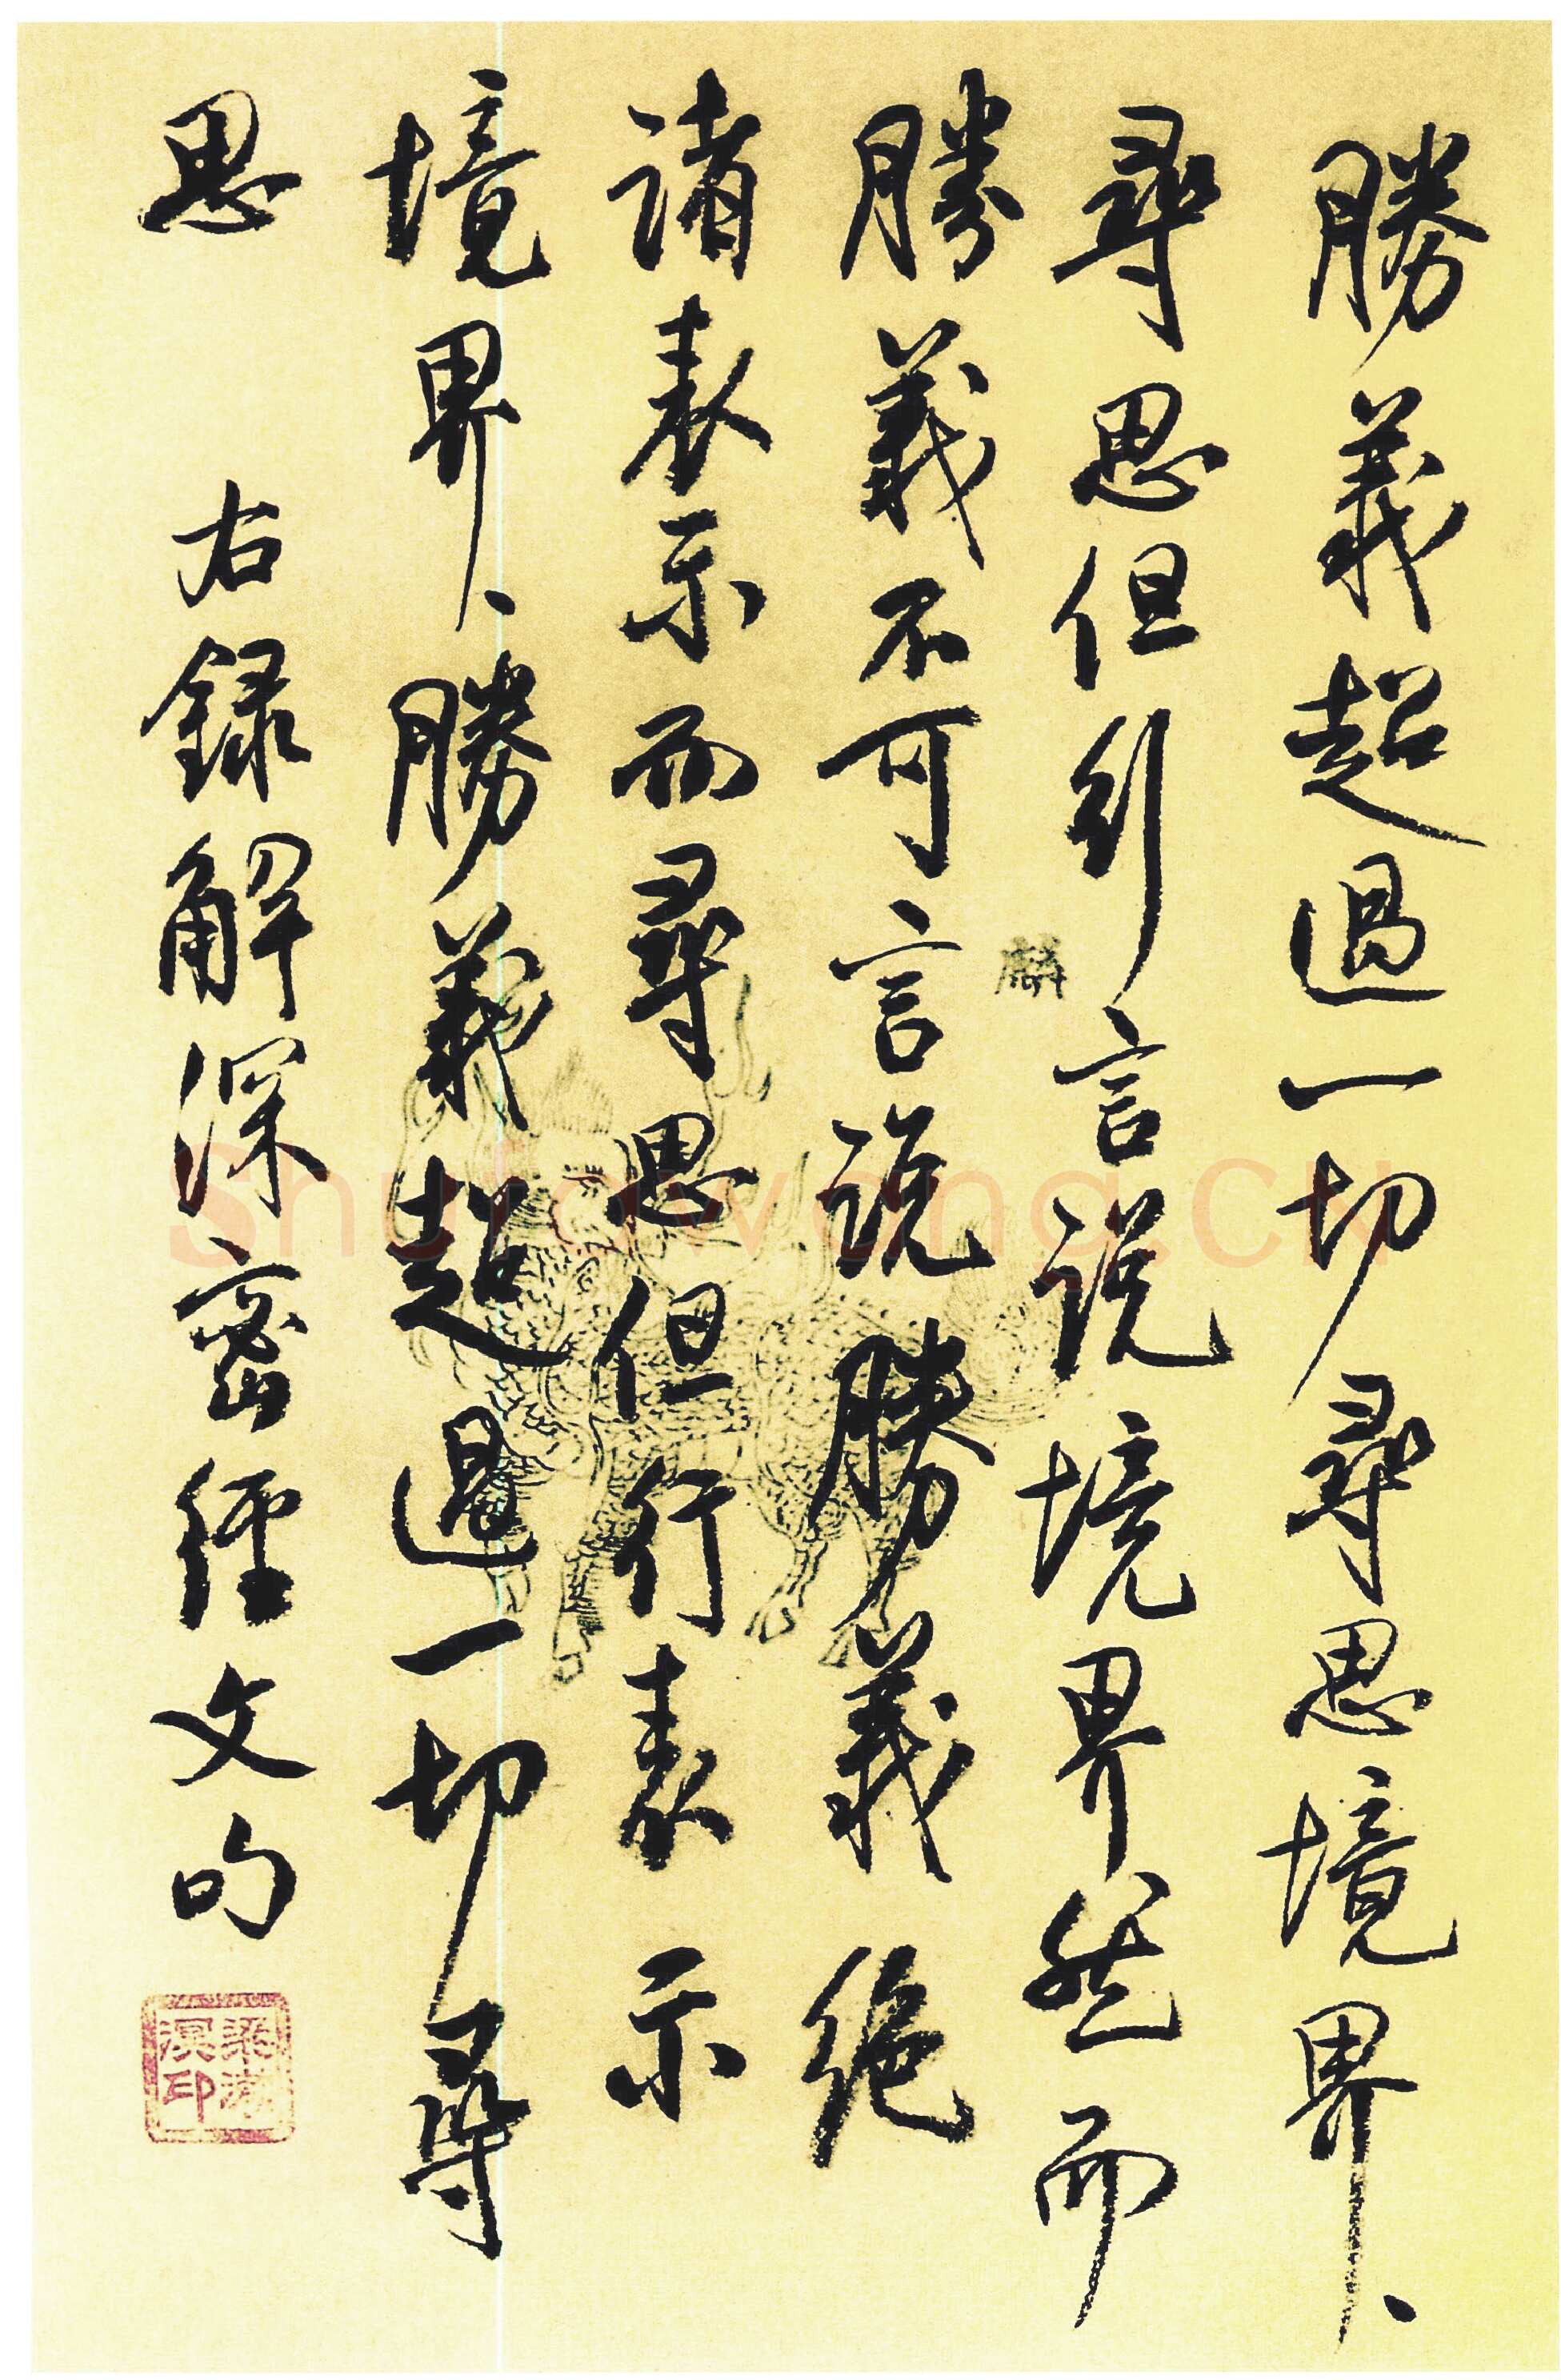 勝義超過一切尋思境界、
尋思但行言说境界然而
勝義不可言说勝義绝
诸表示而尋思但行表示
境界、勝義超過一切尋
思
右録解深密经文句
麟
梁漱溟印
Shufawang.CN